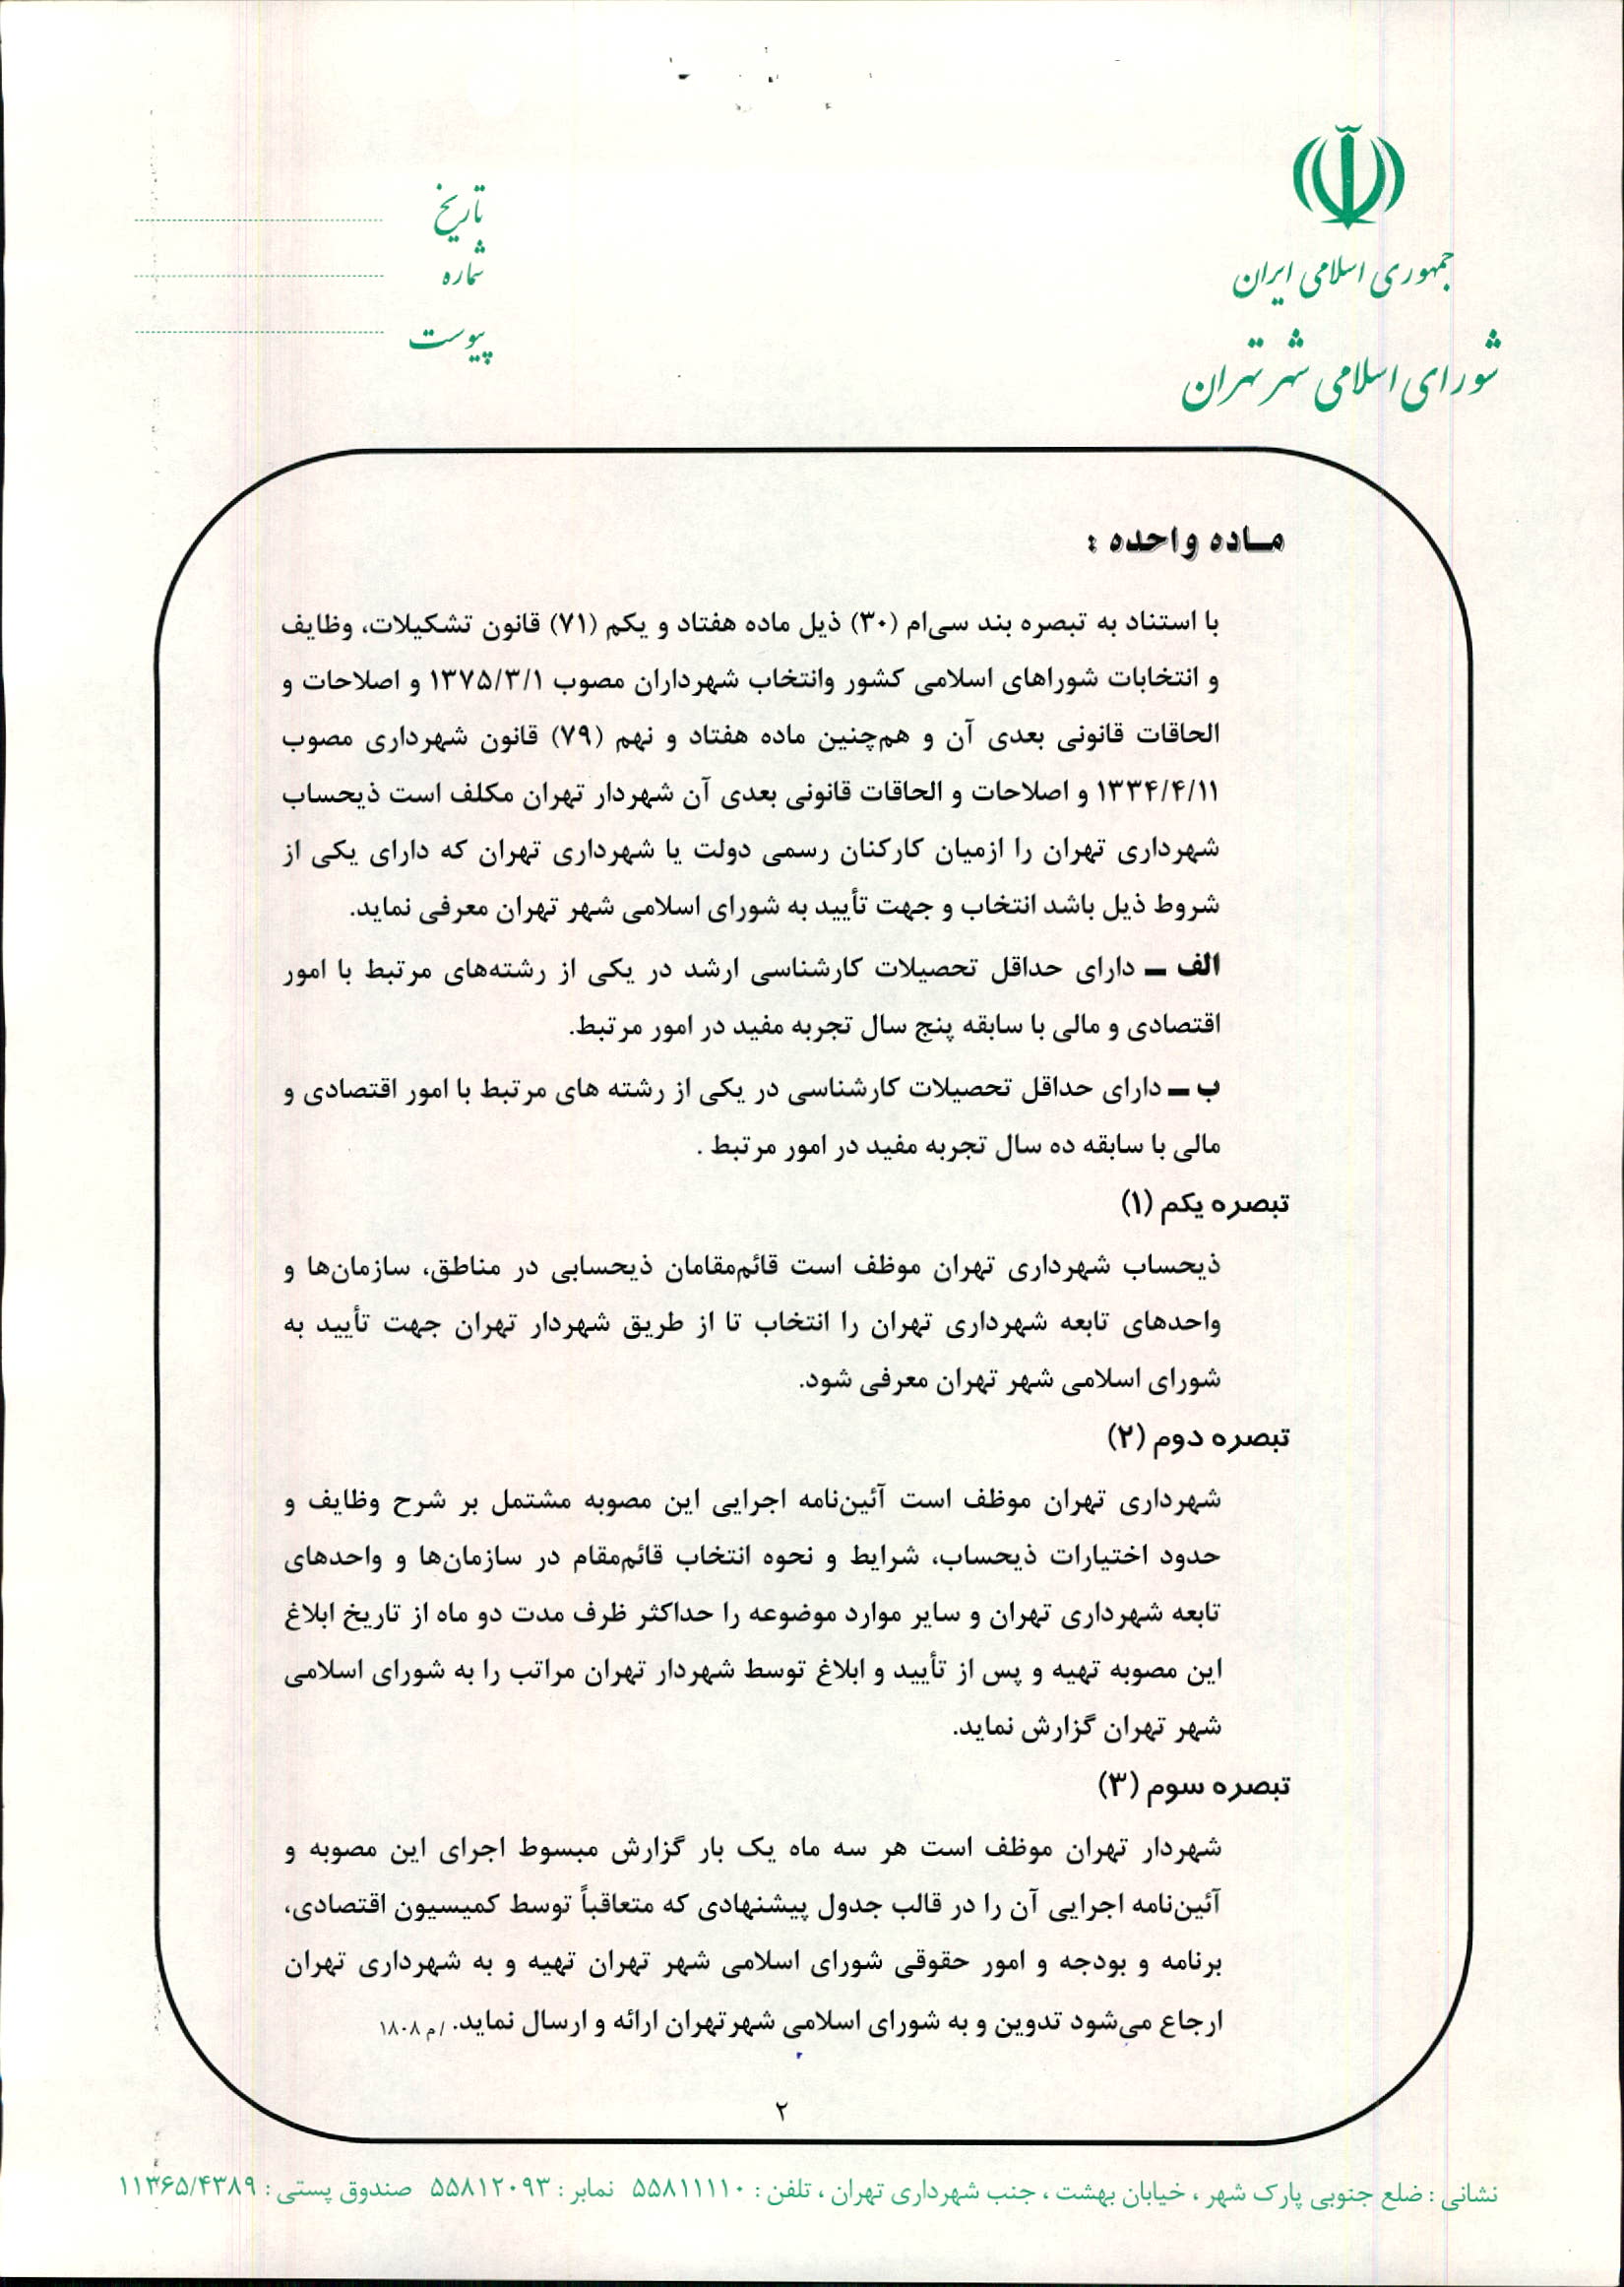 جمهوری اسلامی ایران
شورای اسلامی شهر تهران
تاریخ
شماره
پیوست
مـاده واحده :
با استناد به تبصره بند سی‌ام (۳۰) ذیل ماده هفتاد و یکم (۷۱) قانون تشکیلات، وظایف
و انتخابات شوراهای اسلامی کشور وانتخاب شهرداران مصوب ۱۳۷۵/۳/۱ و اصلاحات و
الحاقات قانونی بعدی آن و هم‌چنین ماده هفتاد و نهم (۷۹) قانون شهرداری مصوب
۱۳۳۴/۴/۱۱ و اصلاحات و الحاقات قانونی بعدی آن شهردار تهران مکلف است ذیحساب
شهرداری تهران را ازمیان کارکنان رسمی دولت یا شهرداری تهران که دارای یکی از
شروط ذیل باشد انتخاب و جهت تأیید به شورای اسلامی شهر تهران معرفی نماید.
الف ـ دارای حداقل تحصیلات کارشناسی ارشد در یکی از رشته‌های مرتبط با امور
اقتصادی و مالی با سابقه پنج سال تجربه مفید در امور مرتبط.
ب ـ دارای حداقل تحصیلات کارشناسی در یکی از رشته های مرتبط با امور اقتصادی و
مالی با سابقه ده سال تجربه مفید در امور مرتبط .
تبصره یکم (۱)
ذیحساب شهرداری تهران موظف است قائم‌مقامان ذیحسابی در مناطق، سازمان‌ها و
واحدهای تابعه شهرداری تهران را انتخاب تا از طریق شهردار تهران جهت تأیید به
شورای اسلامی شهر تهران معرفی شود.
تبصره دوم (۲)
شهرداری تهران موظف است آئین‌نامه اجرایی این مصوبه مشتمل بر شرح وظایف و
حدود اختیارات ذیحساب، شرایط و نحوه انتخاب قائم‌مقام در سازمان‌ها و واحدهای
تابعه شهرداری تهران و سایر موارد موضوعه را حداکثر ظرف مدت دو ماه از تاریخ ابلاغ
این مصوبه تهیه و پس از تأیید و ابلاغ توسط شهردار تهران مراتب را به شورای اسلامی
شهر تهران گزارش نماید.
تبصره سوم (۳)
شهردار تهران موظف است هر سه ماه یک بار گزارش مبسوط اجرای این مصوبه و
آئین‌نامه اجرایی آن را در قالب جدول پیشنهادی که متعاقباً توسط کمیسیون اقتصادی،
برنامه و بودجه و امور حقوقی شورای اسلامی شهر تهران تهیه و به شهرداری تهران
ارجاع می‌شود تدوین و به شورای اسلامی شهرتهران ارائه و ارسال نماید. /م ۱۸۰۸
۲
نشانی : ضلع جنوبی پارک شهر ، خیابان بهشت ، جنب شهرداری تهران ، تلفن : ۵۵۸۱۱۱۱۰ نمابر : ۵۵۸۱۲۰۹۳ صندوق پستی : ۱۱۳۶۵/۴۳۸۹